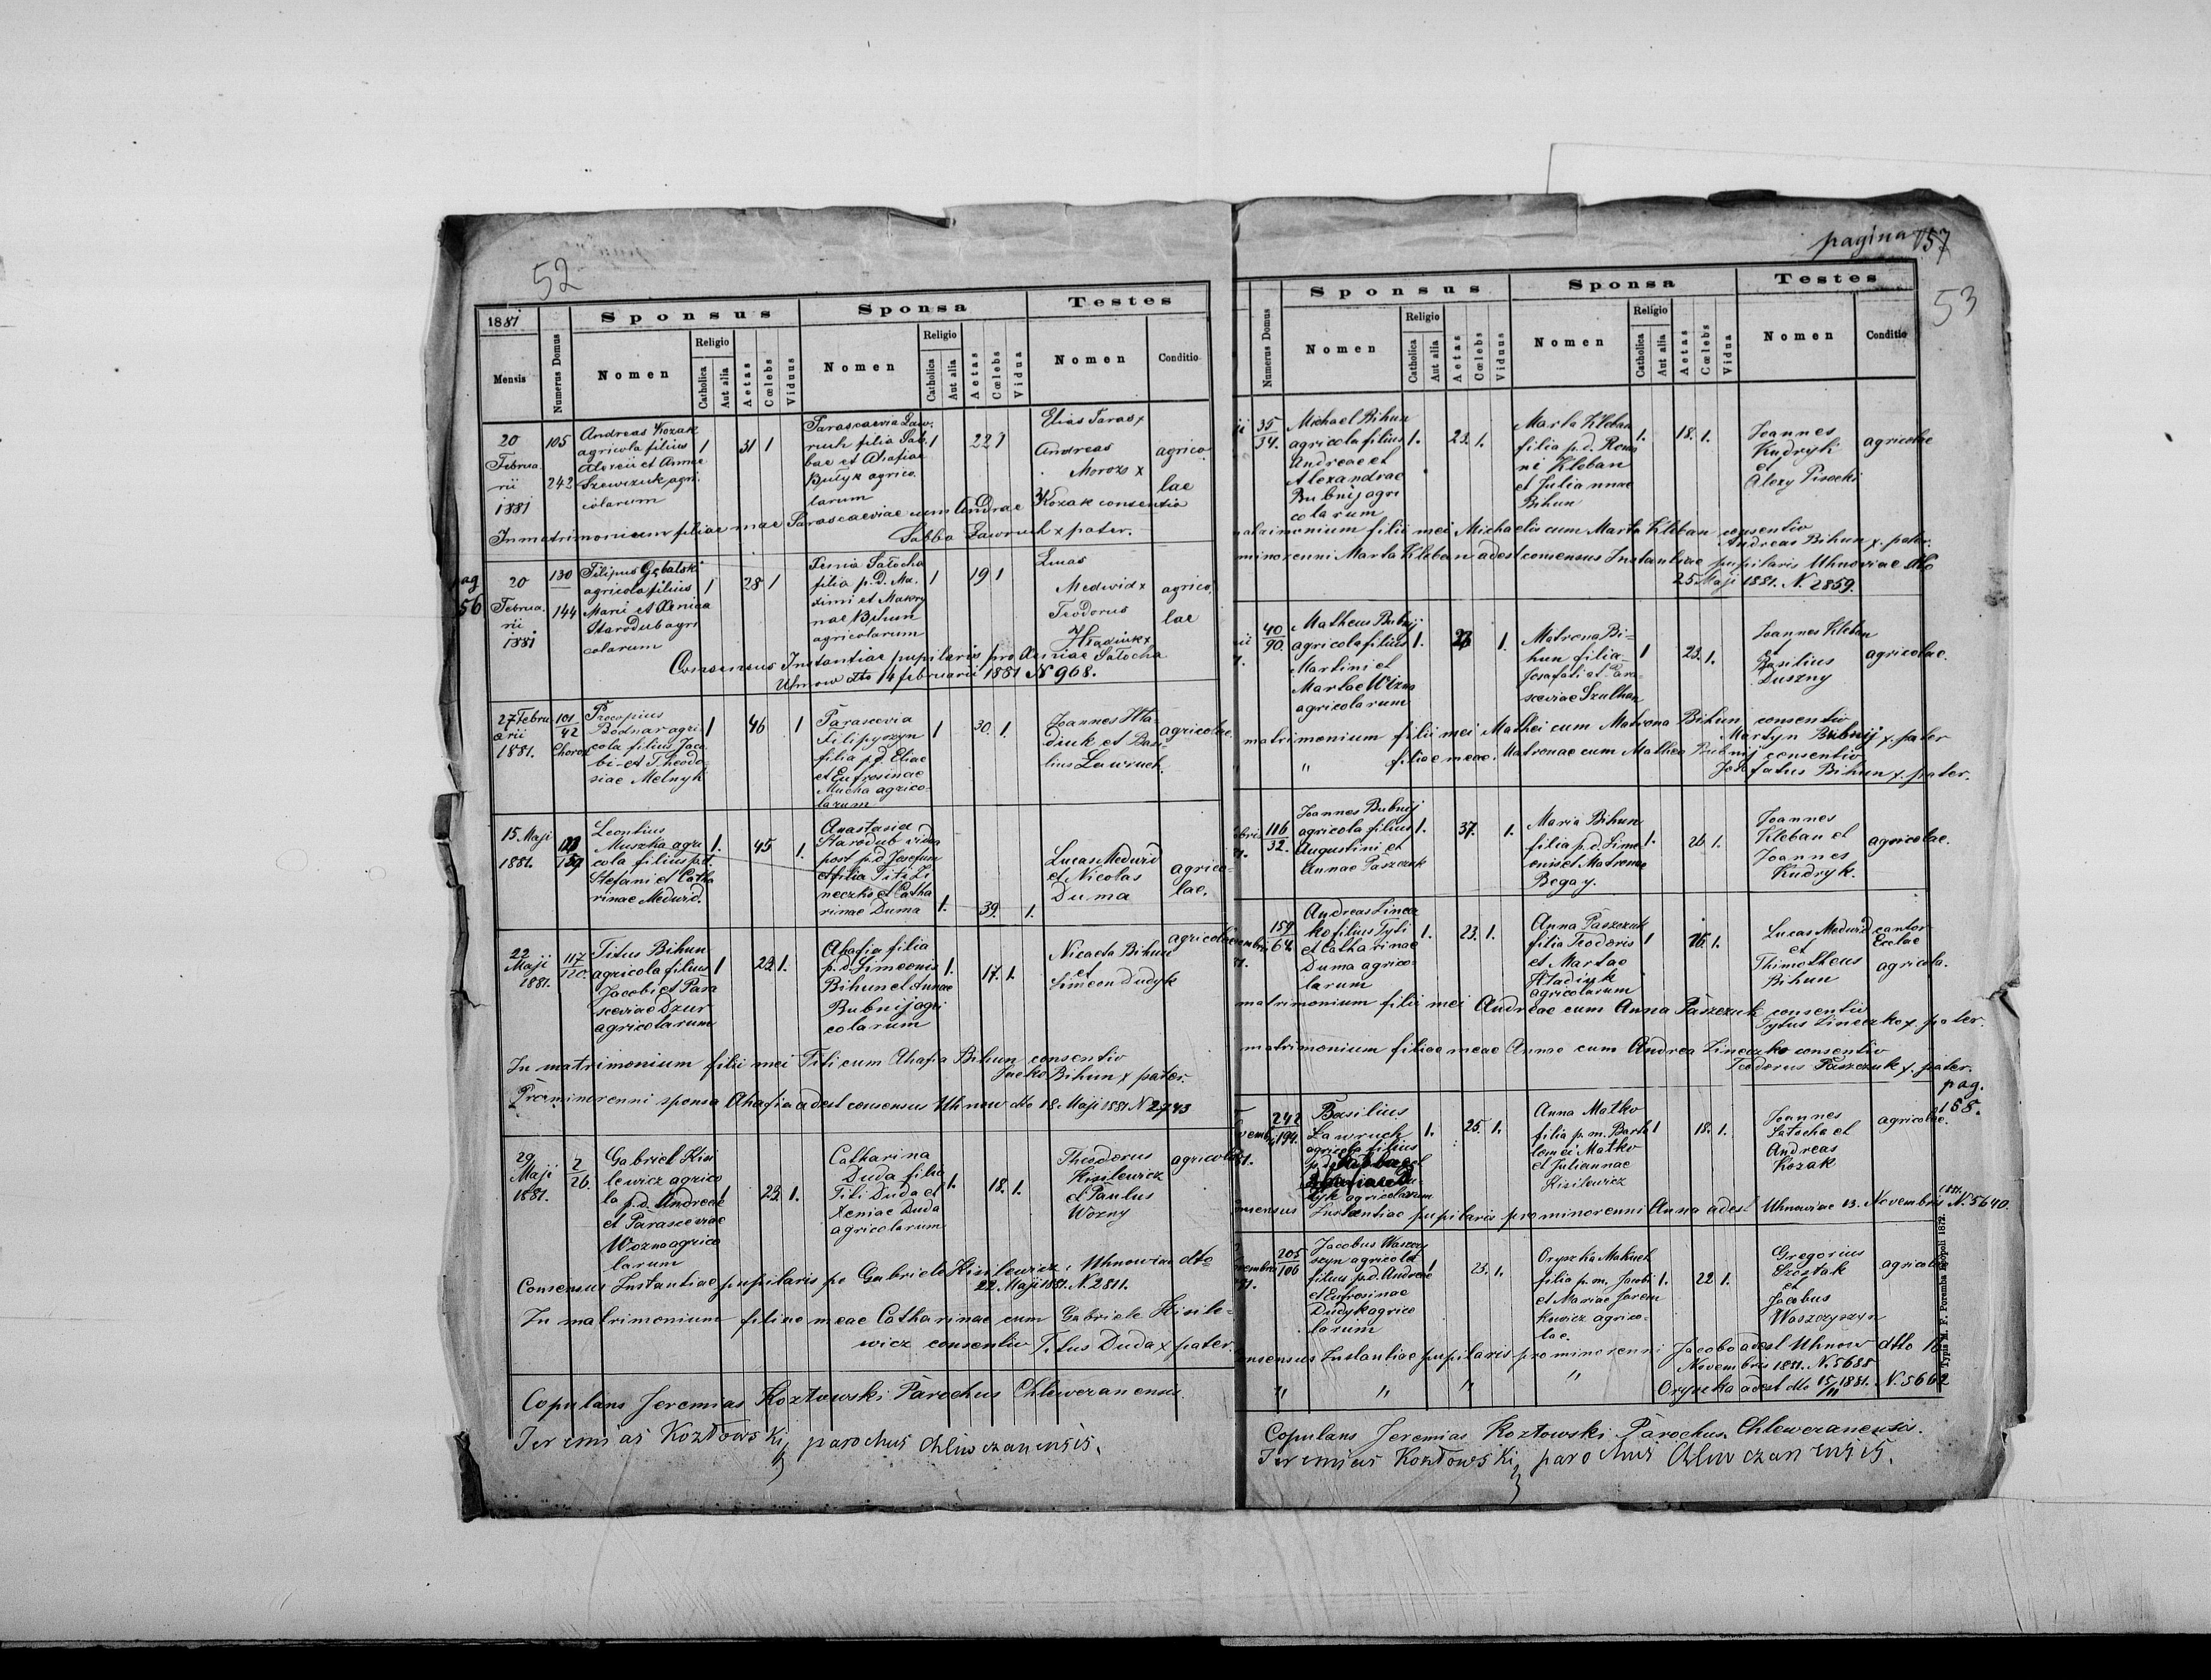 52
1881
Sponsus
Sponsa
Testes
Mensis
Numerus Domus
Nomen
Religio
Catholica
Aut alia
Aetas
Cœlebs
Viduus
Nomen
Religio
Catholica
Aut alia
Aetas
Cœlebs
Vidua
Nomen
Conditio
20
Februa
rii
1881
105
242
Andreas Kozak
agricola filius
Alexii et Annae
Szewczuk agri
colarum
1
31
1
Parascaevia Law
ruch filia Sab
bae et Ahafiae
Dudyk agrico
larum
1
22
1
Elias Taras x
Andreas
Morozo x
agrico
lae
In matrimonium filiae meae Parascaeviae cum Andrae Kozak consentio
Sabba Lawruch x pater.
pag
56
20
Februa
rii
1881
130
144
Filipus Gębalski
agricola filius
Marii et Xenia
Starodub agri
colarum
1
28
1
Xenia Satocha
filia p.d. Ma
ximi et Makry
nae Bihun
agricolarum
1
19
1
Lucas
Medwid x
Teodorus
Hladiuk x
agrico
lae
Consensus Instantiae pupilaris pro Xeniae Satocha
Uhnow dto 14 februarii 1881 N 968.
27 Febru
arii
1881.
101
42
Procopius
Bodnar agri
cola filius Jaco
bi et Theodo
siae Melnyk
1
46
1
Parascevia
Filipyszyn
filia p.d. Eliae
et Eufrosinae
Mucha agrico
larum
1
30.
1.
Joannes Hla
diuk et Basi
lius Lawruch.
agricolae.
15 Maji
1881.
Leontius
Muszka agri
cola filius p.d.
Stefani et Catha
rinae Meduid.
1.
45
1.
Anastasia
Starodub vidua
post p.d. Josefum
et filia Titi Li
neczko et Catha
rinae Duma
1.
39.
1.
Lucas Meduid
et Nicolas
Duma
agrico
lae.
22
Maji
1881.
117
120.
Titus Bihun
agricola filius
Jacobi et Para
sceviae Dzur
agricolarum
1
23
1.
Ahafia filia
p.d. Simeonis
Bihun et Annae
Bubnij agri
colarum
1.
17.
1.
Nicaeta Bihun
et
Simeon Dudyk
agricolae
In matrimonium filii mei Titi cum Ahafia Bihun consentio
Jacko Bihun x pater.
Pro minorenni sponsa Ahafia adest consensus Uhnow dto 18 Maji 1881 N 2743
29
Maji
1881.
2
26.
Gabriel Kisi
lewicz agrico
la p.d. Andreae
et Parasceviae
Wozna agrico
larum
1
23.
1.
Catharina
Duda filia
Titi Duda et
Xeniae Duda
agricolarum
1.
18.
1.
Theodorus
Kisilewicz
et Paulus
Wozny
agricolae
Consensus Instantiae pupilaris po Gabriele Kisilewicz Uhnoviae dto
22. Maji 1881. N. 2811.
In matrimonium filiae meae Catharinae cum Gabriele Kisile-
wicz consentio Titus Duda x pater.
Copulans Jeremias Kozłowski Parochus Chlewczanensis.
Jeremias Kozłowski, parochus Chlewczanensis.
pagina 157
53
Sponsus
Sponsa
Testes
Numerus Domus
Nomen
Religio
Catholica
Aut alia
Aetas
Cœlebs
Viduus
Nomen
Religio
Catholica
Aut alia
Aetas
Cœlebs
Vidua
Nomen
Conditio
35
34.
Michael Bihun
agricola filius
Andreae et
Alexandrae
Bubnij agri
colarum
1.
23.
1.
Marta Kleban
filia p.d. Roma
ni Kleban
et Juliannae
Bihun
1.
18.
1.
Joannes
Kudryk
et
Alexy Pisocki
agricolae
matrimonium filii mei Michaelis cum Marta Kleban consentio
Andreas Bihun x. pater.
minorenni Marta Kleban adest consensus Instantiae pupilaris Uhnoviae dto
25 Maji 1881. N. 2859.
40
90.
Matheus Bubnij
agricola filius
Martini et
Martae Wizna
agricolarum
1.
1.
Matrona Bi-
hun filia
Josafati et Para-
sceviae Szulhan
1
23.
1.
Joannes Kleban
et
Basilius
Duszny
agricolae.
matrimonium filii mei Mathei cum Matrona Bihun consentio
Martyn Bubnij x. pater
" " filiae meae Matronae cum Matheo Bubnij consentio
Josafatus Bihun x. pater.
116
32.
Joannes Bubnij
agricola filius
Augustini et
Annae Paszczuk
1.
37.
1.
Maria Bihun
filia p.d. Sime
onis et Matronae
Begay.
1.
26
1.
Joannes
Kleban et
Joannes
Kudryk.
agricolae.
159
64.
Andreas Linecz
ko filius Tyti
et Catharinae
Duma agrico
larum
1.
23.
1.
Anna Paszczuk
filia Teodoris
et Martae
Hladiuk
agricolarum
1
1.
Lucas Meduid
et
Thimotheus
Bihun
cantor
Ecclae
agricola.
matrimonium filii mei Andreae cum Anna Paszczuk consentio
Tytus Lineczko x. pater.
matrimonium filiae meae Annae cum Andrea Lineczko consentio
Teodorus Paszczuk x. pater.
pag.
158.
242
194.
Basilius
Lawruch
agricola filius
p.d. Sabbae et
Ahafiae Du
dyk agricolarum
1.
25.
1.
Anna Matko
filia p.m. Barto
lomei Matko
et Juliannae
Kisilewicz
1
18.
1.
Joannes
Satocha et
Andreas
Kozak
agricolae.
Consensus Instantiae pupilaris pro minorenni Anna adest Uhnoviae 13. Novembris 1881. N. 5640.
205
106
Jacobus Waszczy
szyn agricola
filius p.d. Andreae
et Eufrosinae
Dudyk agrico
larum
1
23.
1.
Oryszka Makuch
filia p.m. Jacobi
et Mariae Jarem
kowicz agrico-
lae.
1.
22
1.
Gregorius
Szostak
et
Jacobus
Waszczyszyn
agricolae
Consensus Instantiae pupilaris pro minorenni Jacobo adest Uhnow dtto 16
Novembris 1881. N. 5688
" " " " Oryszka adest dto 15/11 1881. N. 5662
Typis M. F. Poremba Leopoli 1872.
Copulans Jeremias Kozłowski Parochus Chlewczanensis.
Jeremias Kozłowski, parochus Chlewczanensis.